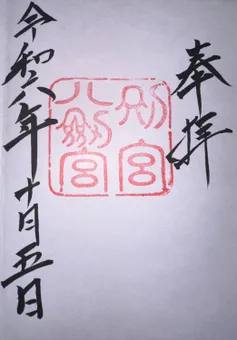 奉拝
別宮
八剣宮
令和六年十月五日